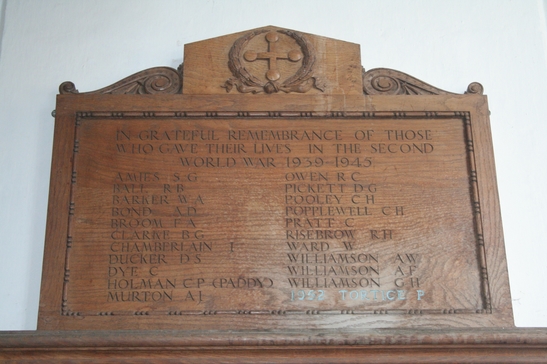 IN GRATEFUL REMEMBRANCE OF THOSE
WHO GAVE THEIR LIVES IN THE SECOND
WORLD WAR 1939-1945
AMIES S.G
BALL R.B
BARKER W.A
BOND A.D
BROOM F.A
CLARKE B.G
CHAMBERLAIN T
DUCKER D.S
DYE C
HOLMAN C.P (PADDY)
MURTON A.J
OWEN R.C
PICKETT D.G
POOLEY C.H
POPPLEWELL C.H
PRATT C
RISEBROW R.H
WARD W
WILLIAMSON A.W
WILLIAMSON A.F
WILLIAMSON G.H